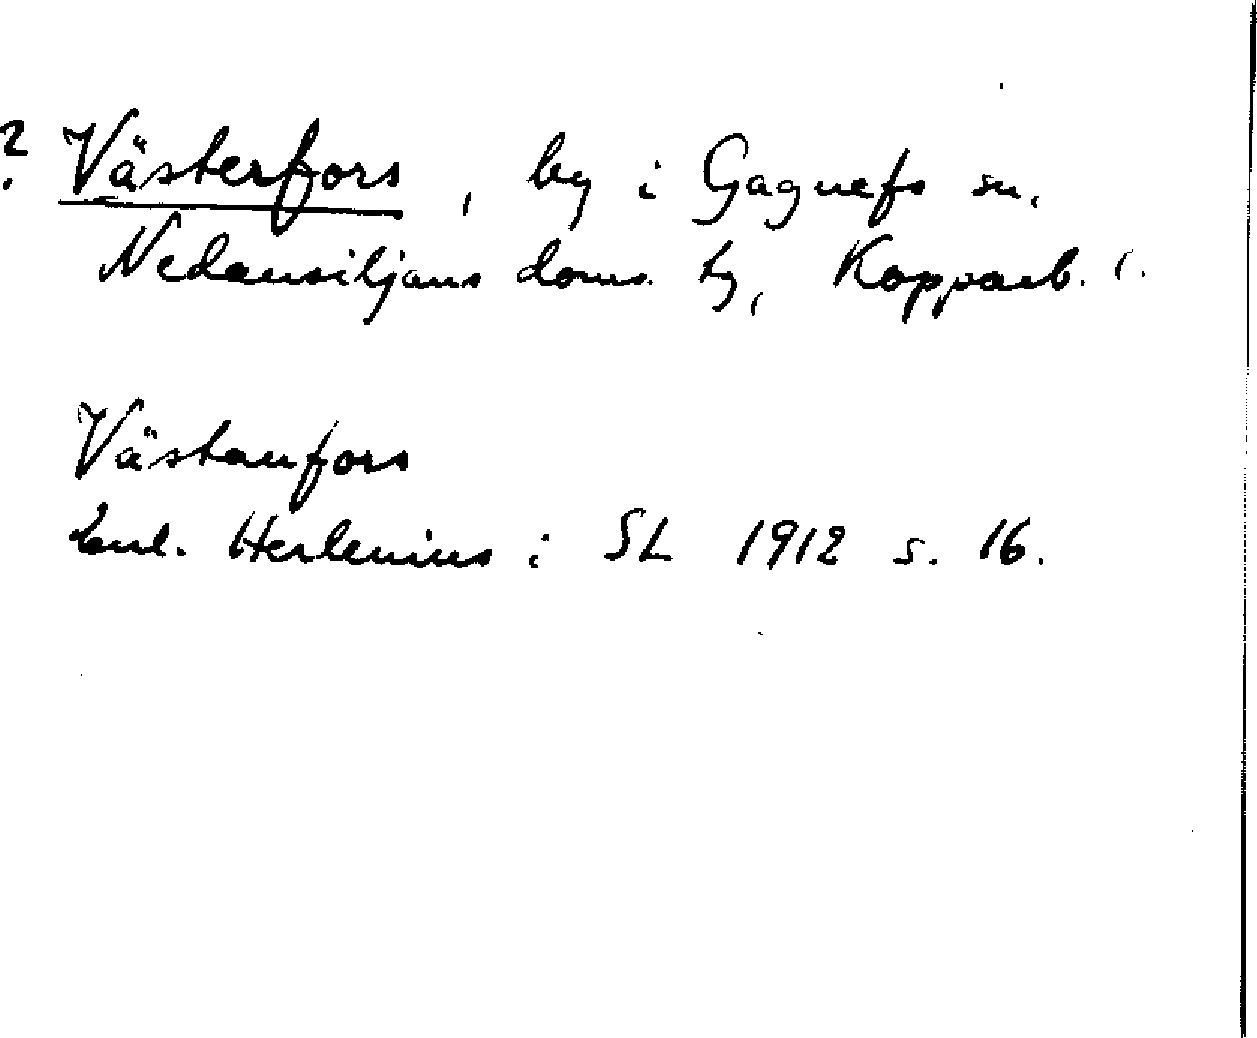 ? Västerfors, by i Gagnefs sn,
Nedansiljans doms. tg, Kopparb. l.
Västanfors
enl. Herlenius i SL 1912 s. 16.